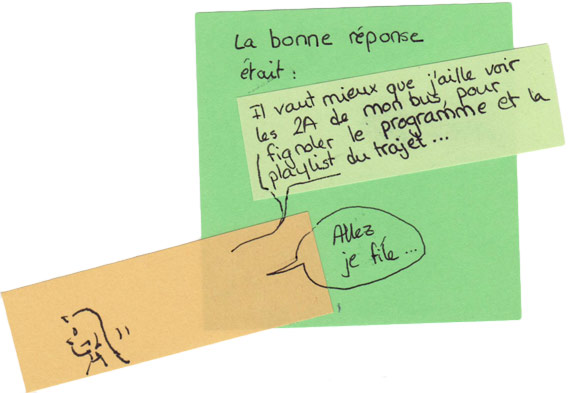 La bonne réponse
était :
Il vaut mieux que j'aille voir
les 2A de mon bus, pour
fignoler le programme et la
playlist du trajet...
Allez
je file...